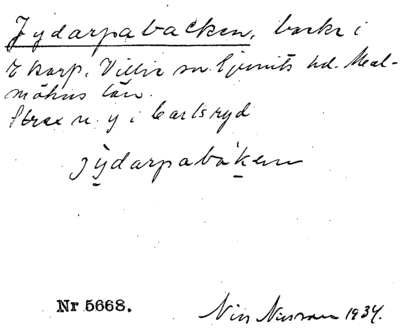 Jydarpabacken, backe i
Ekarp, Villie sn. Ljunits hd. Mal-
möhus län.
Strax n. y i Carlsryd
jydarpabakem
Nr 5668.
Nils 1934.